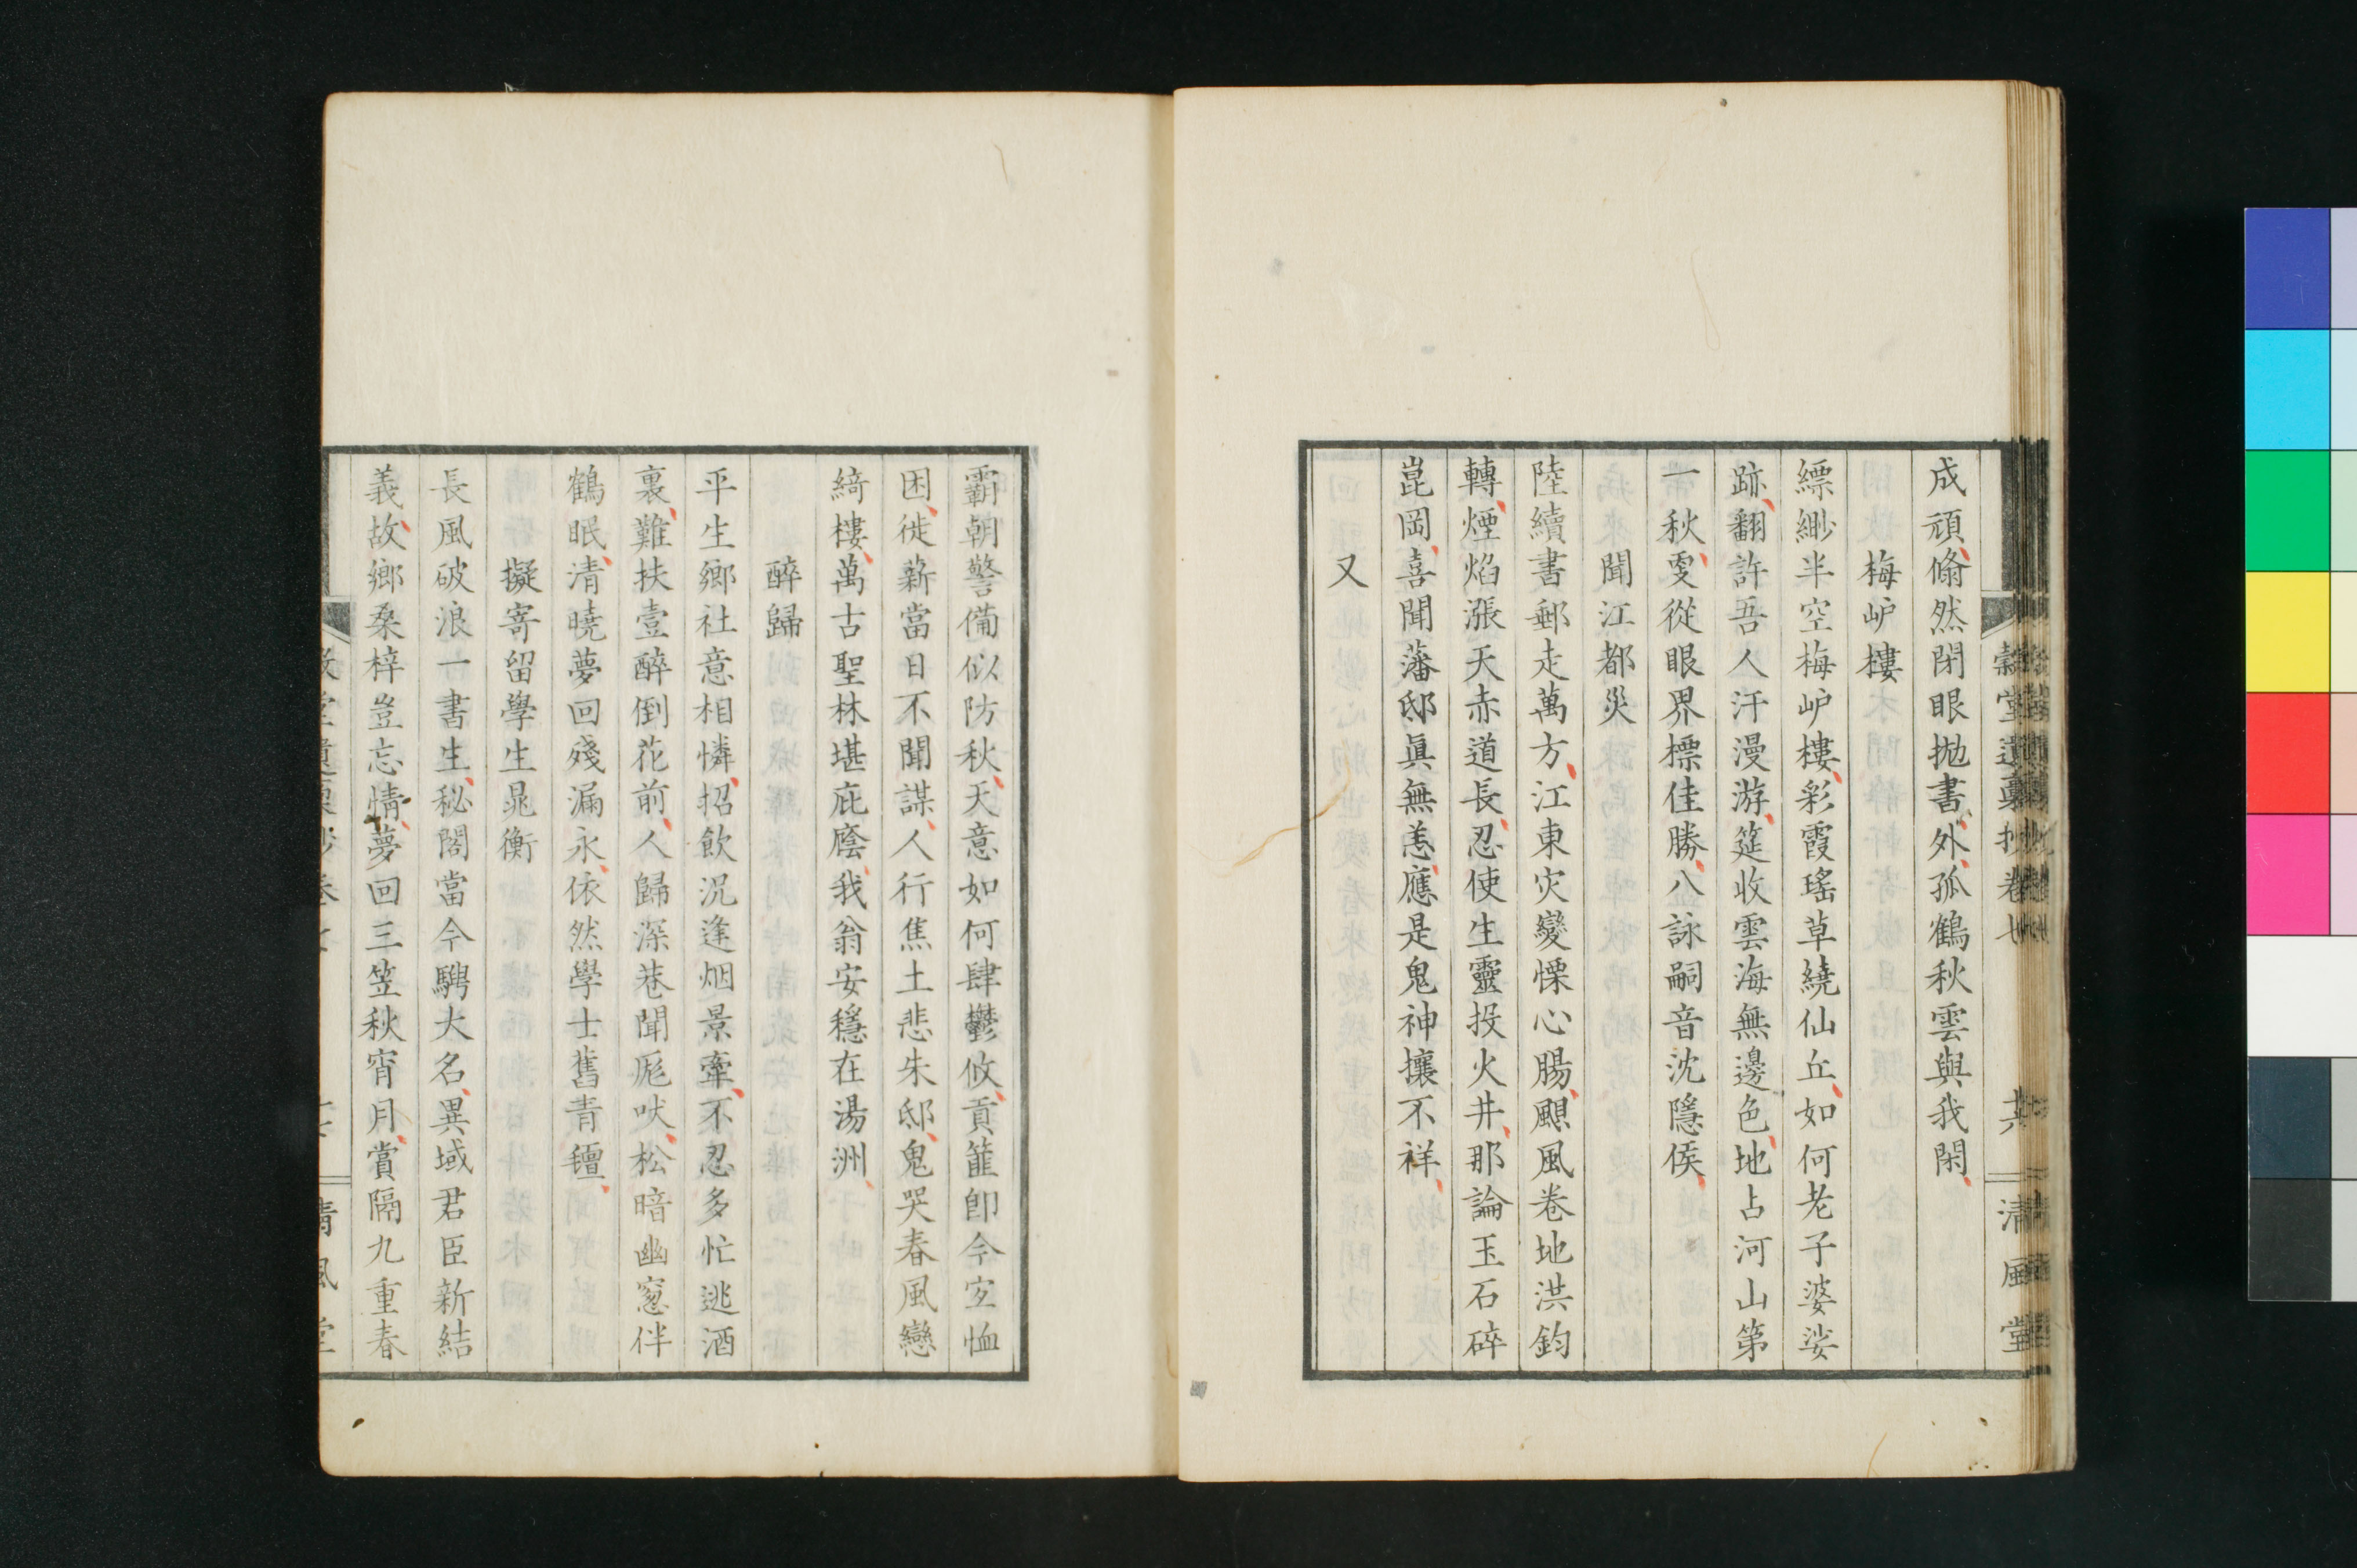 成頑翛然閉眼拋書外孤鶴秋雲與我閑
梅岵樓
縹緲半空梅岵樓彩霞瑤草繞仙丘如何老子婆娑
跡翻許吾人汗漫游筵收雲海無邊色地占河山第
一秋更從眼界標佳勝八詠嗣音沈隱侯
聞江都災
陸續書郵走萬方江東灾變慄心腸颶風卷地洪鈞
轉煙焰漲天赤道長忍使生靈投火井那論玉石碎
崑岡喜聞藩邸眞無恙應是鬼神攘不祥
又
穀堂遺稾抄卷七
清風堂
霸朝警備似防秋天意如何肆鬱攸貢篚卽今宜恤
困徙薪當日不聞謀人行焦土悲朱邸鬼哭春風戀
綺樓萬古聖林堪庇廕我翁安穩在湯洲
醉歸
平生鄉社意相憐招飮況逢烟景牽不忍多忙逃酒
裏難扶壹醉倒花前人歸深巷聞尨吠松暗幽窓伴
鶴眠清曉夢回殘漏永依然學士舊青氊
擬寄留學生晁衡
長風破浪一書生秘閣當今騁大名異域君臣新結
義故鄉桑梓豈忘情夢回三笠秋宵月賞隔九重春